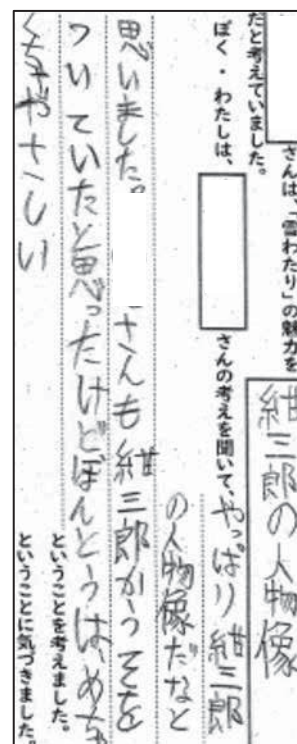 さんは、「雪わたり」の魅力を
紺三郎の人物像
だと考えていました。
ぼく・わたしは、
さんの考えを聞いて、やっぱり紺三郎
の人物像だなと
思いました。
さんも紺三郎がうそを
ついていたと思ったけどぼんとうは、めちゃ
くちゃやさしい
ということを考えました。
ということに気づきました。